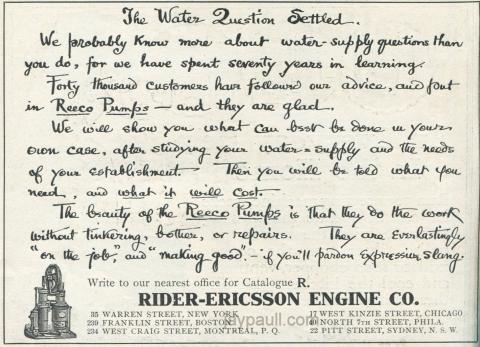 The Water Question Settled.
We probably know more about water-supply questions than
you do, for we have spent seventy years in learning.
Forty thousand customers have followed our advice, and put
in Reeco Pumps — and they are glad.
We will show you what can best be done in your
own case, after studying your water-supply and the needs
of your establishment. Then you will be told what you
need, and what it will cost.
The beauty of the Reeco Pumps is that they do the work
without tinkering, bother, or repairs. They are Everlastingly
"on the job," and "making good". — if you'll pardon expressive slang.
Write to our nearest office for Catalogue R.
RIDER-ERICSSON ENGINE CO.
35 WARREN STREET, NEW YORK 17 WEST KINZIE STREET, CHICAGO
239 FRANKLIN STREET, BOSTON 40 NORTH 7TH STREET, PHILA.
234 WEST CRAIG STREET, MONTREAL, P. Q. 22 PITT STREET, SYDNEY, N. S. W.
jaypaull.com